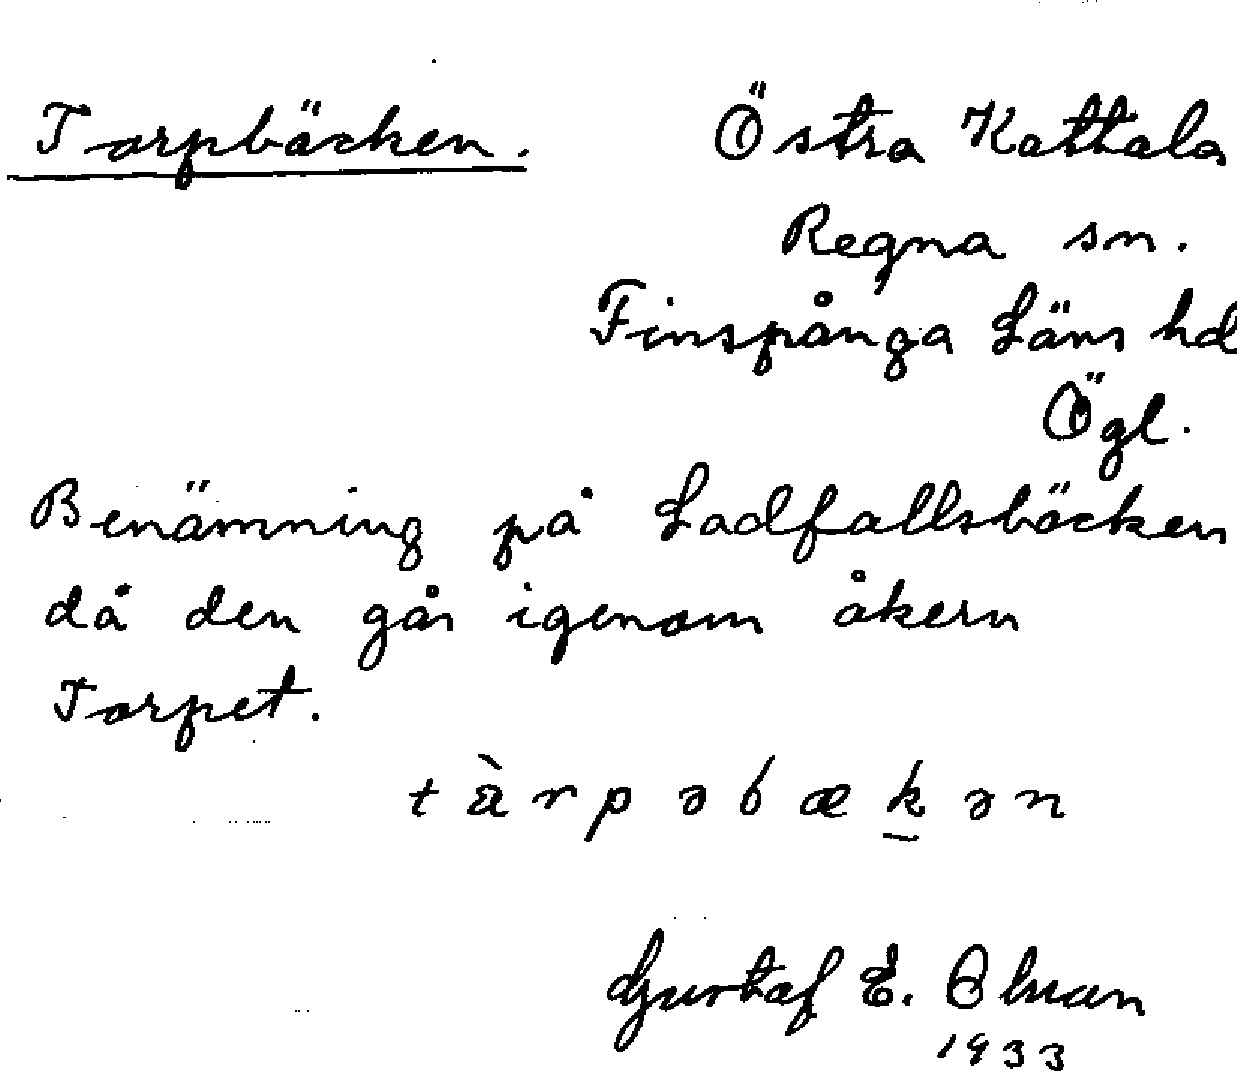 Torpbäcken. Östra Kattala
Regna sn.
Finspånga Läns hd
Ögl.
Benämning på Ladfallsbäcken
då den går igenom åkern
Torpet.
tàrpəbækən
Gustaf E. Ohman
1933